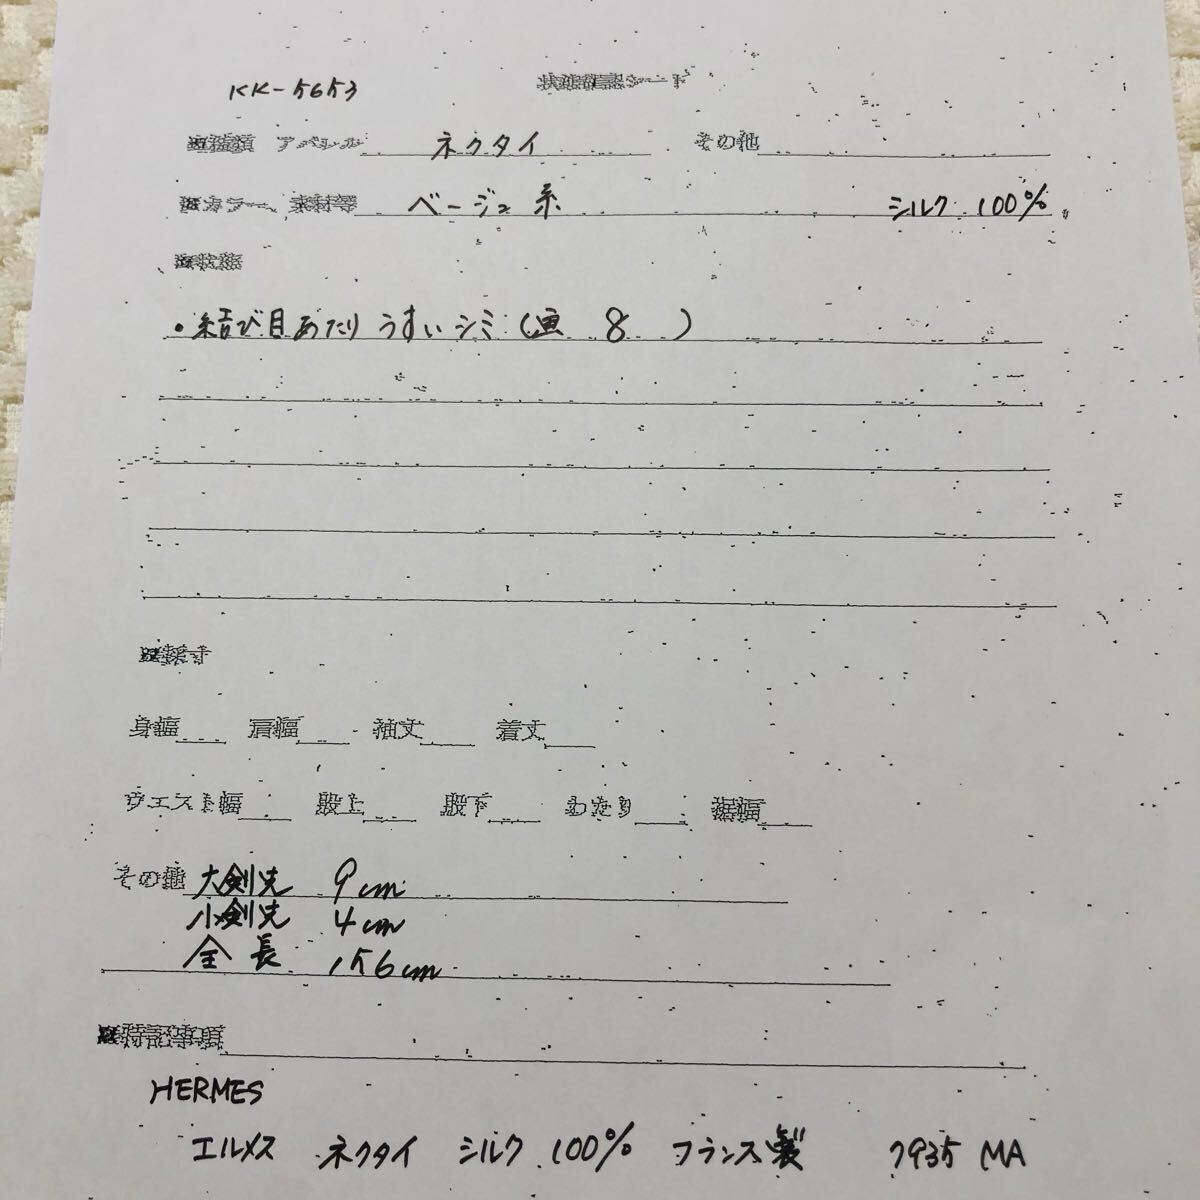 KK-5653
状態確認シート
種類 アパレル ネクタイ その他
カラー、素材等 ベージュ系 シルク 100%
状態
・結び目あたり うすいシミ (画 8 )
採寸
身幅 肩幅 袖丈 着丈
ウエスト幅 股上 股下 わたり 裾幅
その他 大剣先 9cm
小剣先 4cm
全長 156cm
特記事項
HERMES
エルメス ネクタイ シルク 100% フランス製 7935 MA